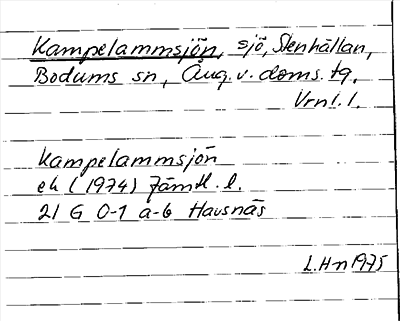 Kampelammsjön, sjö, Stenhällan,
Bodums sn, Ång. v. doms. tg,
Vrnl. l.
Kampelammsjön
ek (1974) Jämtl. l.
21 G 0-1 a-b Havsnäs
L.Hn 1975